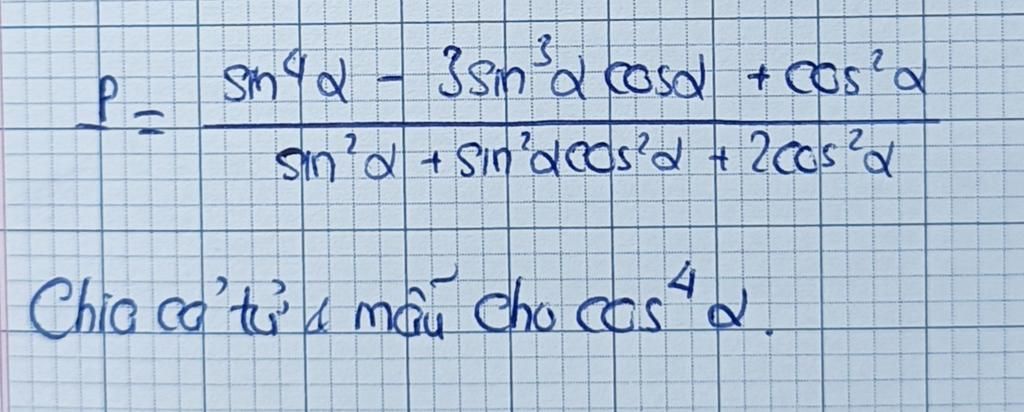 P = (sin⁴α - 3sin³α cosα + cos²α) / (sin²α + sin²αcos²α + 2cos²α)
Chia cả tử & mẫu cho cos⁴α.